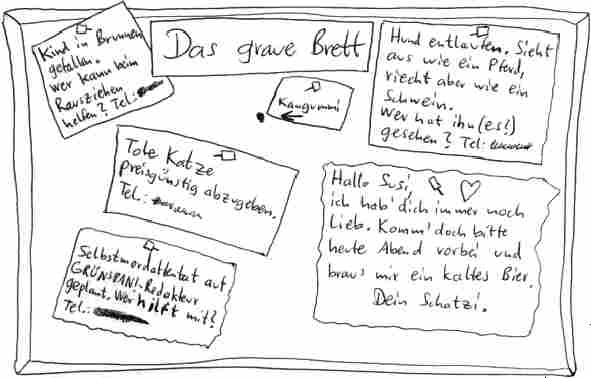 Das graue Brett
Kind in Brunnen
gefallen.
wer kann beim
Rausziehen
helfen? Tel.:
Kaugummi
Hund entlaufen. Sieht
aus wie ein Pferd,
riecht aber wie ein
Schwein.
Wer hat ihn (es!)
gesehen? Tel:
Tote Katze
preisgünstig abzugeben.
Tel.:
Hallo Susi,
ich hab' dich immer noch
Lieb. Komm' doch bitte
heute Abend vorbei und
brau' mir ein kaltes Bier.
Dein Schatzi.
Selbstmordattentat auf
GRÜNSPAN!-Redakteur
geplant. Wer hilft mit?
Tel.: